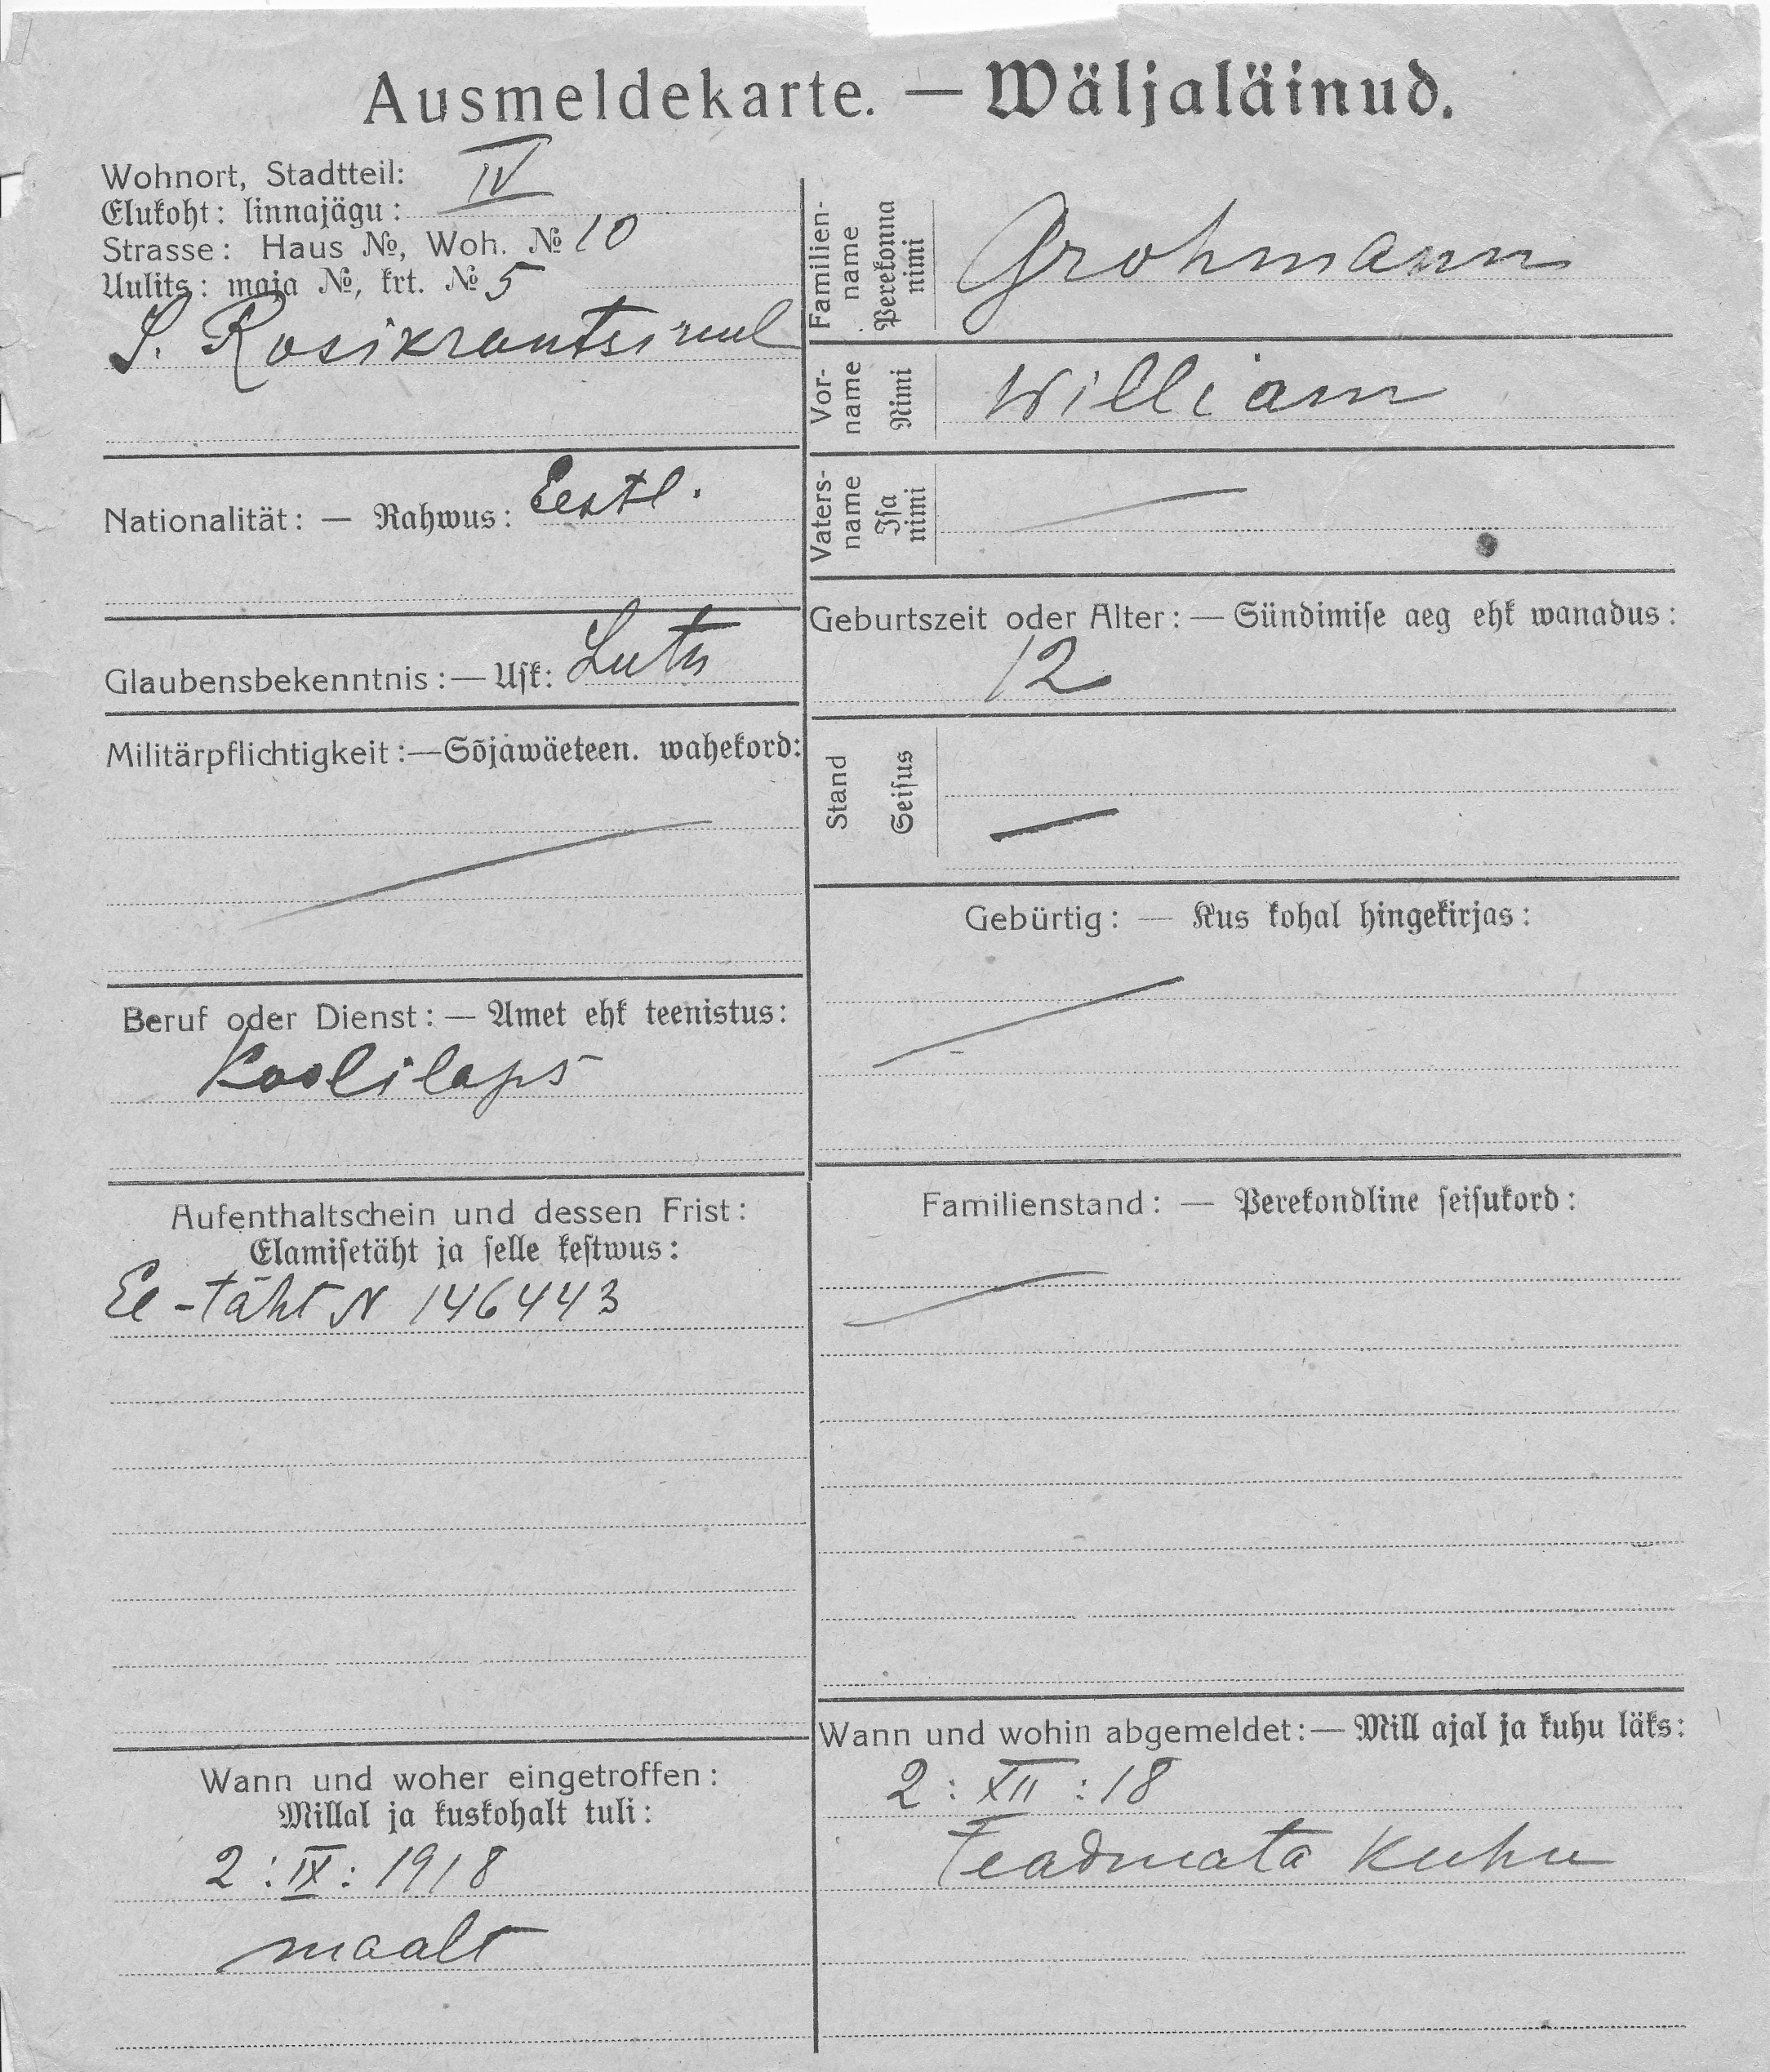 Ausmeldekarte. — Wäljaläinud.
Wohnort, Stadtteil: IV
Elukoht: linnajägu:
Strasse: Haus №, Woh. № 10
Uulits: maja №, krt. № 5
S. Rosikrantsi uul
Nationalität: — Rahwus: Eestl.
Glaubensbekenntnis: — Usk: Luth
Militärpflichtigkeit: — Sõjawäeteen. wahekord:
Beruf oder Dienst: — Amet ehk teenistus:
Koolilaps
Aufenthaltschein und dessen Frist:
Elamisetäht ja selle kestwus:
Ee-täht N 146443
Wann und woher eingetroffen:
Millal ja kuskohalt tuli:
2 : IX : 1918
maalt
Familien-
name
Perekonna
nimi
Grohmann
Vor-
name
Nimi
William
Vaters-
name
Isa
nimi
Geburtszeit oder Alter: — Sündimise aeg ehk wanadus:
12
Stand
Seisus
Gebürtig: — Kus kohal hingekirjas:
Familienstand: — Perekondline seisukord:
Wann und wohin abgemeldet: — Mill ajal ja kuhu läks:
2 : XII : 18
Teadmata kuhu